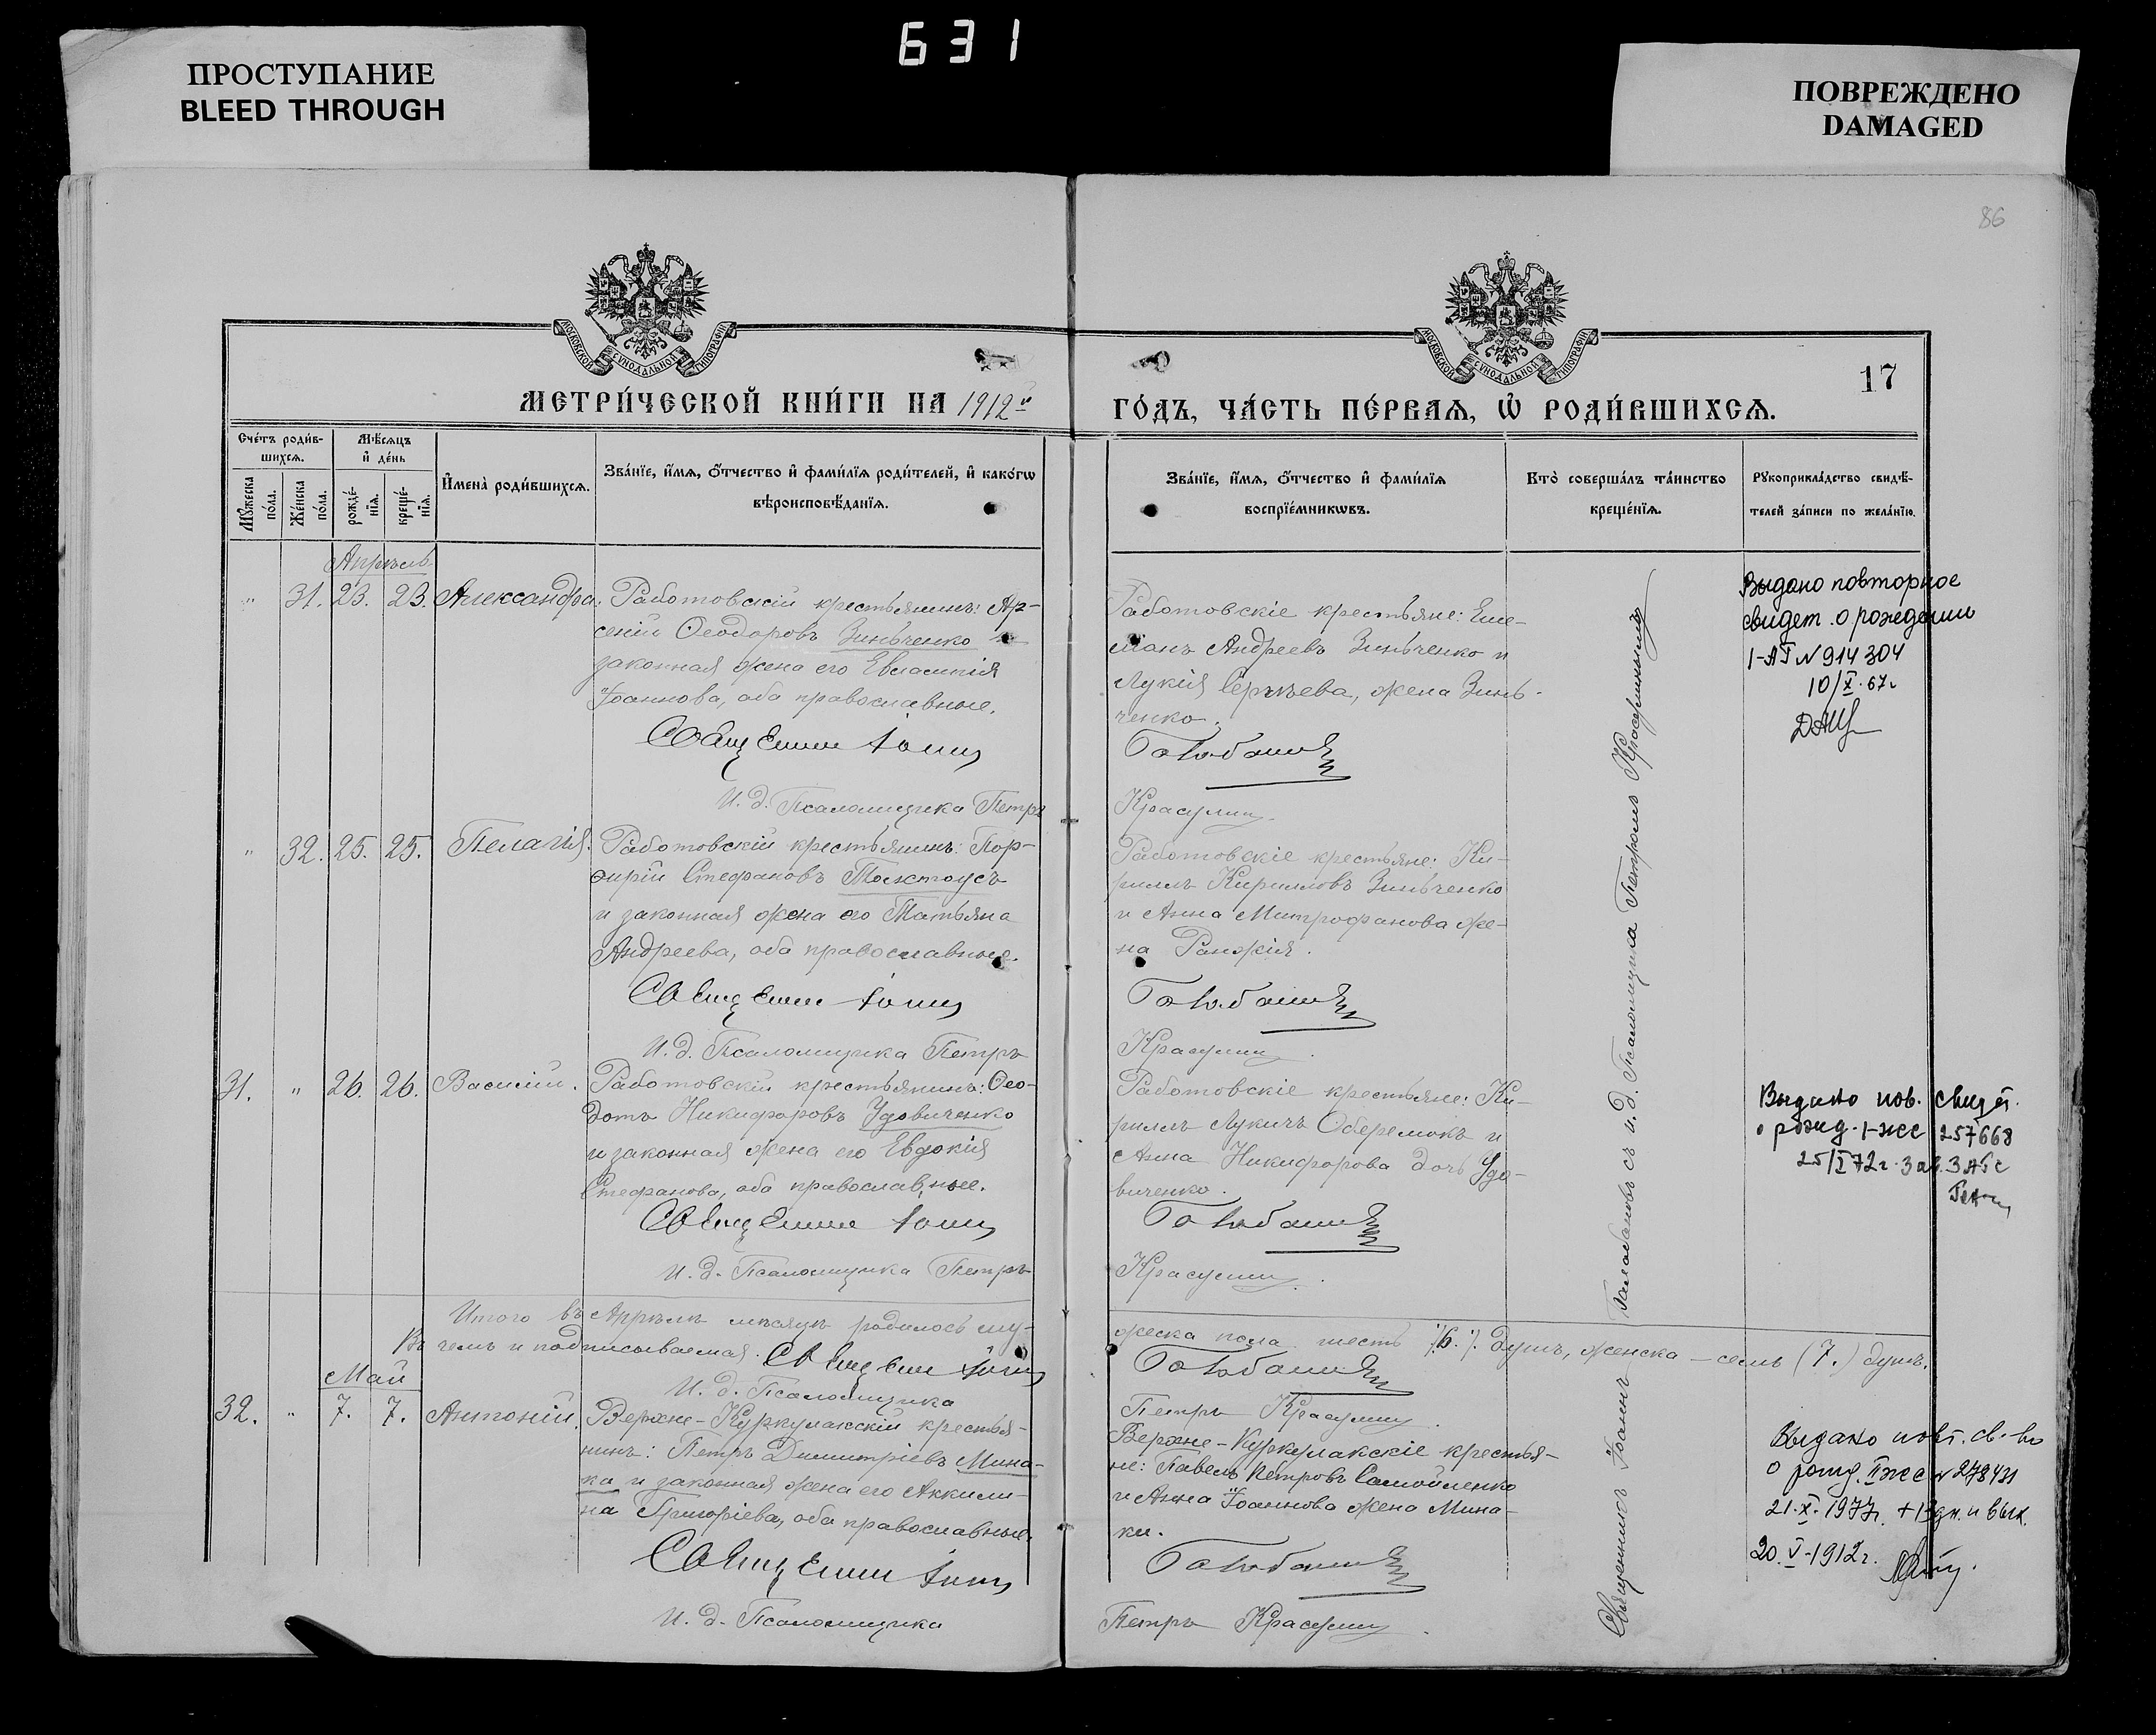 631
ПРОСТУПАНИЕ
BLEED THROUGH
ПОВРЕЖДЕНО
DAMAGED
86
МОСКОВСКОЙ СѴНОДАЛЬНОЙ ТИПОГРАФІИ
МОСКОВСКОЙ СѴНОДАЛЬНОЙ ТИПОГРАФІИ
17
МЕТРИ́ЧЕСКОЙ КНИ́ГИ НА 1912й
ГО́ДЪ, ЧА́СТЬ ПЕ́РВАѦ, Ѡ РОДИ́ВШИХСѦ.
Сче́тъ роди́в-
шихсѧ.
Мѣ́сѧцъ
и҆ де́нь
Мꙋ́жеска
по́ла.
Же́нска
по́ла.
рожде́-
нїѧ.
креще́-
нїѧ.
И҆мена̀ роди́вшихсѧ.
Зва́нїе, и҆́мѧ, ѻ҆́тчество и҆ фами́лїѧ роди́телей, и҆ како́гѡ
вѣроисповѣ́данїѧ.
Зва́нїе, и҆́мѧ, ѻ҆́тчество и҆ фами́лїѧ
воспрїе́мникѡвъ.
Кто̀ соверша́лъ та́инство
креще́нїѧ.
Рꙋкоприкла́дство свидѣ́-
телей за́писи по жела́нїю.
Апрѣль
" 31. 23. 23. Александра.
Работовскій крестьянинъ: Ар-
сеній Ѳеодоровъ Зинъченко и
законная жена его Евлампія
Іоаннова, оба православные.
Священник Іоанн
И. д. Псаломщика Петръ
Работовскіе крестьяне: Еме-
ліанъ Андреевъ Зинъченко и
Лукія Сергѣева, жена Зинь-
ченко.
Галабанов
Красулин
Выдано повторное
свидет. о рождении
I-АГ N 914304
10/X.67г
" 32. 25. 25. Пелагія.
Работовскій крестьянинъ: Пор-
фирій Стефановъ Толстоусъ
и законная жена его Татьяна
Андреева, оба православные.
Священник Іоанн
И. д. Псаломщика Петръ
Работовскіе крестьяне: Ки-
риллъ Кирилловъ Зинъченко
и Анна Митрофанова же-
на Ранжія.
Галабанов
Красулин.
31. " 26. 26. Василій.
Работовскій крестьянинъ: Ѳео-
дотъ Никифоровъ Удовиченко
и законная жена его Евдокія
Стефанова, оба православные.
Священник Іоанн
И. д. Псаломщика Петръ
Работовскіе крестьяне: Ки-
риллъ Лукичъ Оберемокъ и
Анна Никифорова дочь Удо-
виченко.
Галабанов
Красулин.
Выдано пов. свидет.
о рожд. I-жс 257668
25/I 72г. Зав. ЗАГС
Итого въ Апрѣлѣ мѣсяцѣ родилось му-
жеска пола шесть /.6./. душъ, женска – семь (7.) душъ.
Въ чемъ и подписываемся. Священник Іоанн
Галабанов
И. д. Псаломщика
Петръ Красулин.
Май
32. " 7. 7. Антоній.
Верхне-Куркулакскій крестья-
нинъ: Петръ Димитріевъ Мина-
ка и законная жена его Аккили-
на Григоріева, оба православные.
Священник Іоанн
И. д. Псаломщика
Верхне-Куркулакскіе крестья-
не: Павелъ Петровъ Самойленко
и Анна Іоаннова жена Мина-
ки.
Галабанов
Петръ Красулин.
Выдано повт. св-во
о рожд. II жс N 278431
21.X.1977г.
20.V-1912г.
Священникъ Іоаннъ Галабановъ съ и. д. Псаломщика Петромъ Красулинымъ